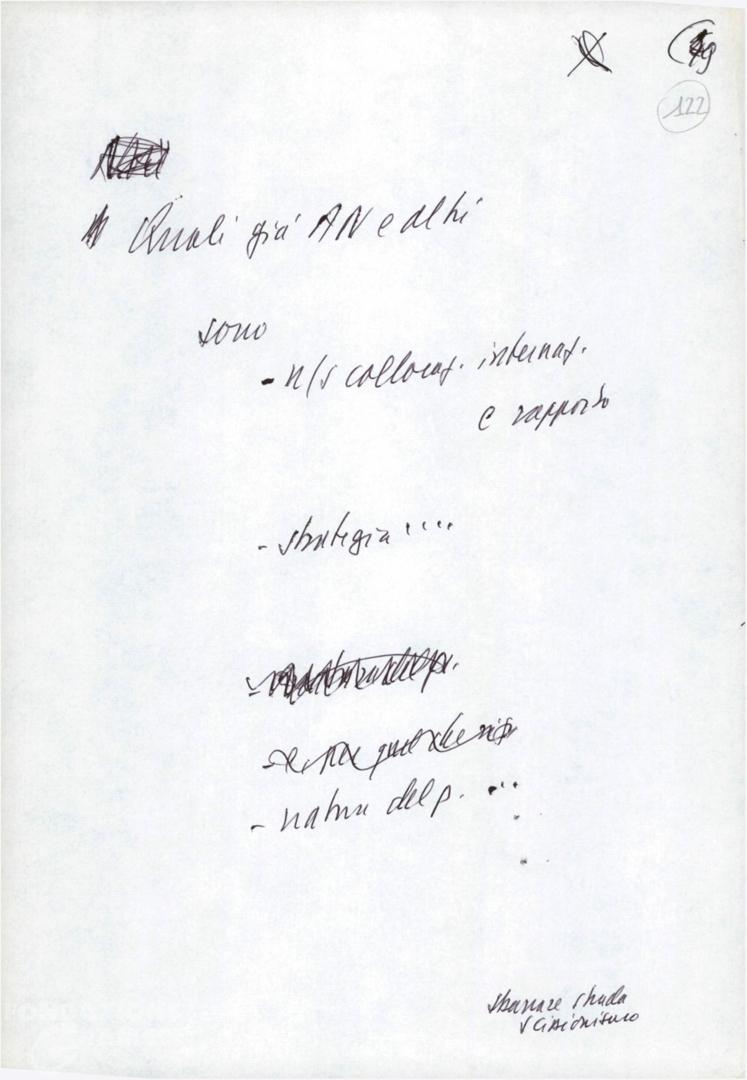 19
122
Quali già AN e altri
sono
- n/s collocaz. internaz.
e rapporto
- strategia ....
- natura del p. ...
sbarrare strada
scissionismo